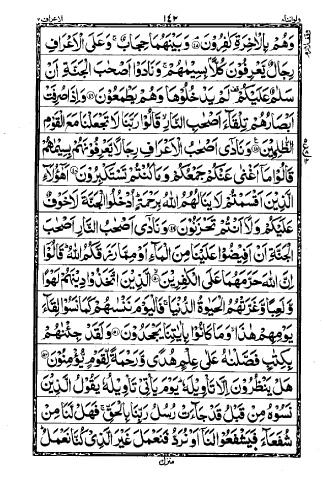 ولواننا ٨
١٤٢
الاعراف ٧
وَهُمْ بِالْاٰخِرَةِ كٰفِرُوْنَ ۘ وَبَيْنَهُمَا حِجَابٌ ۚ وَعَلَى الْاَعْرَافِ
رِجَالٌ يَّعْرِفُوْنَ كُلًّاۢ بِسِيْمٰىهُمْ ۚ وَنَادَوْا اَصْحٰبَ الْجَنَّةِ اَنْ
سَلٰمٌ عَلَيْكُمْ ۫ لَمْ يَدْخُلُوْهَا وَهُمْ يَطْمَعُوْنَ ۝ وَاِذَا صُرِفَتْ
اَبْصَارُهُمْ تِلْقَآءَ اَصْحٰبِ النَّارِ ۙ قَالُوْا رَبَّنَا لَا تَجْعَلْنَا مَعَ الْقَوْمِ
الظّٰلِمِيْنَ ۝ وَنَادٰٓى اَصْحٰبُ الْاَعْرَافِ رِجَالًا يَّعْرِفُوْنَهُمْ بِسِيْمٰىهُمْ
قَالُوْا مَآ اَغْنٰى عَنْكُمْ جَمْعُكُمْ وَمَا كُنْتُمْ تَسْتَكْبِرُوْنَ ۝ اَهٰٓؤُلَآءِ
الَّذِيْنَ اَقْسَمْتُمْ لَا يَنَالُهُمُ اللّٰهُ بِرَحْمَةٍ ؕ اُدْخُلُوا الْجَنَّةَ لَا خَوْفٌ
عَلَيْكُمْ وَلَآ اَنْتُمْ تَحْزَنُوْنَ ۝ وَنَادٰٓى اَصْحٰبُ النَّارِ اَصْحٰبَ
الْجَنَّةِ اَنْ اَفِيْضُوْا عَلَيْنَا مِنَ الْمَآءِ اَوْ مِمَّا رَزَقَكُمُ اللّٰهُ ؕ قَالُوْٓا
اِنَّ اللّٰهَ حَرَّمَهُمَا عَلَى الْكٰفِرِيْنَ ۝ الَّذِيْنَ اتَّخَذُوْا دِيْنَهُمْ لَهْوًا
وَّلَعِبًا وَّغَرَّتْهُمُ الْحَيٰوةُ الدُّنْيَا ۚ فَالْيَوْمَ نَنْسٰىهُمْ كَمَا نَسُوْا لِقَآءَ
يَوْمِهِمْ هٰذَا ۙ وَمَا كَانُوْا بِاٰيٰتِنَا يَجْحَدُوْنَ ۝ وَلَقَدْ جِئْنٰهُمْ
بِكِتٰبٍ فَصَّلْنٰهُ عَلٰى عِلْمٍ هُدًى وَّرَحْمَةً لِّقَوْمٍ يُّؤْمِنُوْنَ ۝
هَلْ يَنْظُرُوْنَ اِلَّا تَاْوِيْلَهٗ ؕ يَوْمَ يَاْتِيْ تَاْوِيْلُهٗ يَقُوْلُ الَّذِيْنَ
نَسُوْهُ مِنْ قَبْلُ قَدْ جَآءَتْ رُسُلُ رَبِّنَا بِالْحَقِّ ۚ فَهَلْ لَّنَا مِنْ
شُفَعَآءَ فَيَشْفَعُوْا لَنَآ اَوْ نُرَدُّ فَنَعْمَلَ غَيْرَ الَّذِيْ كُنَّا نَعْمَلُ
منزل